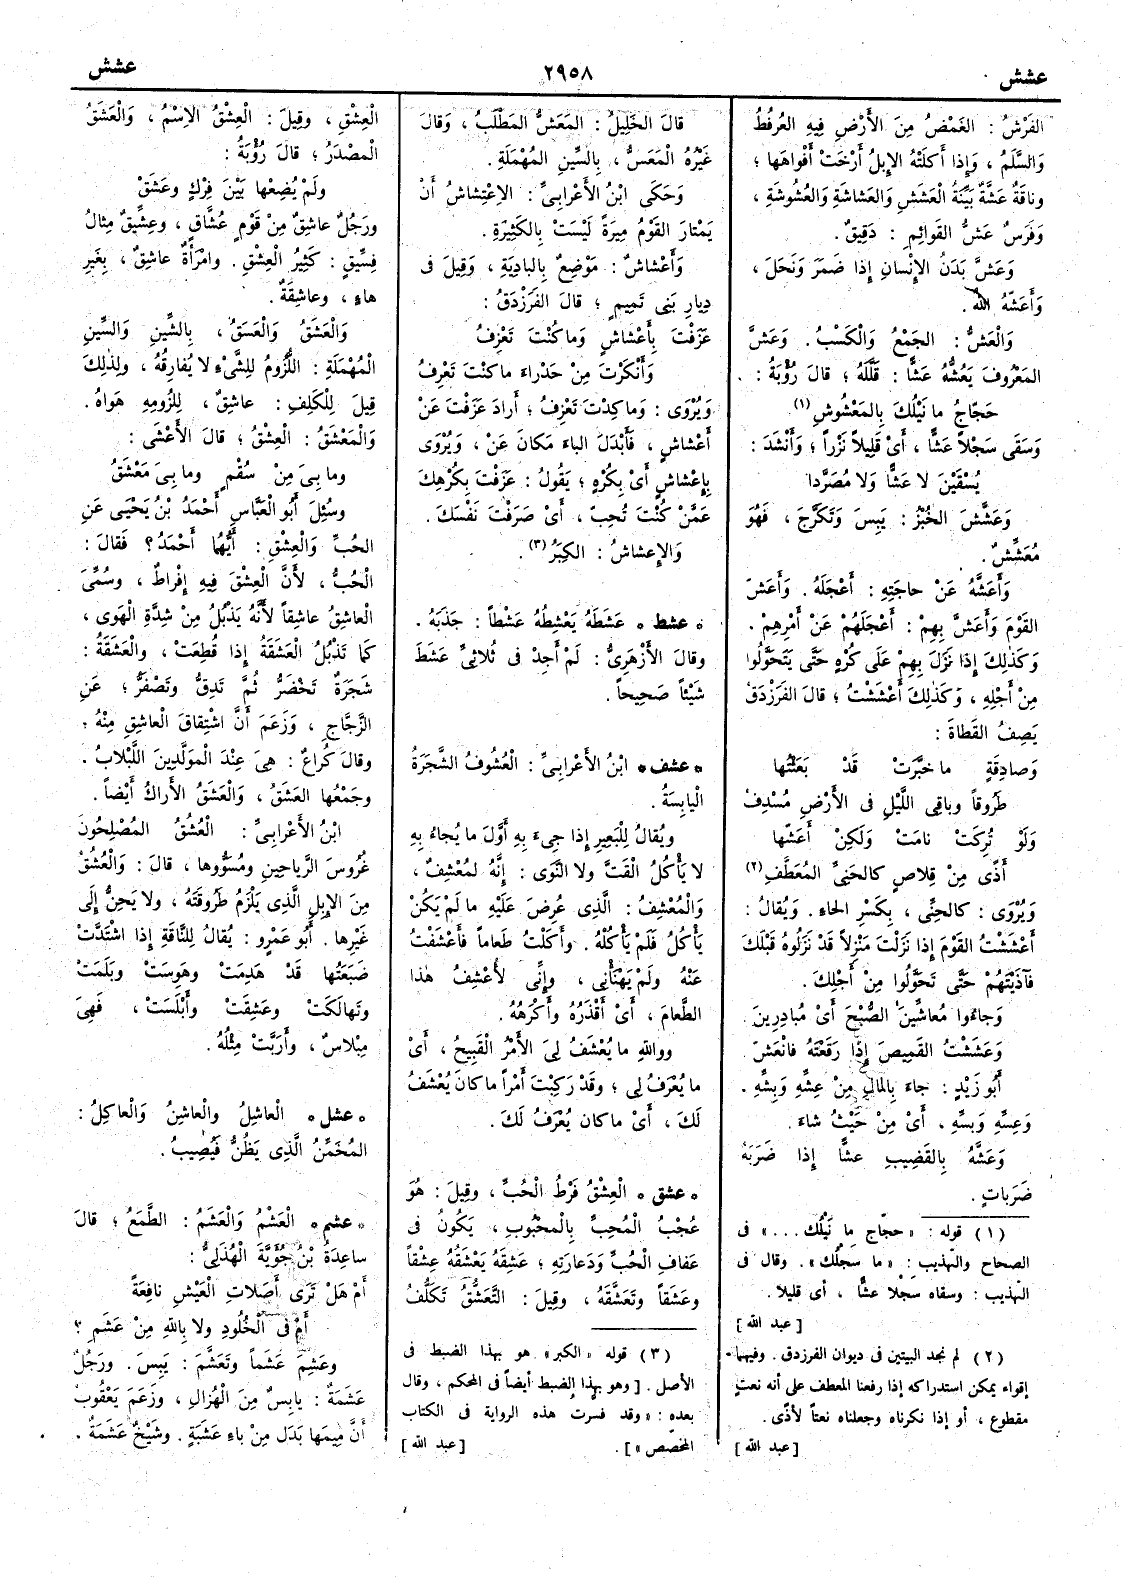 عشش
٢٩٥٨
عشش
الفَرْشُ : الغَمْضُ مِنَ الأَرْضِ فِيهِ العُرْفُطُ
وَالسَّلَمُ ، وَإِذا أَكَلَتْهُ الإِبِلُ أَرْخَتْ أَفْواهَها ؛
وناقَةٌ عَشَّةٌ بَيِّنَةُ الْعَشَشِ وَالعَشاشَةِ وَالعُشُوشَةِ ،
وَفَرَسٌ عَشُّ القَوائِمِ : دَقِيقٌ .
وَعَشَّ بَدَنُ الإِنْسانِ إِذا ضَمَرَ وَنَحَلَ ،
وَأَعَشَّهُ اللهُ .
وَالْعَشُّ : الجَمْعُ وَالْكَسْبُ . وَعَشَّ
المَعْرُوفَ يَعُشُّهُ عَشًّا : قَلَّلَهُ ؛ قالَ رُؤْبَةُ :
حَجّاجُ ما نَيْلُكَ بِالمَعْشُوشِ (١)
وَسَقَى سَجْلاً عَشًّا ، أَىْ قَلِيلاً نَزْراً ؛ وَأَنْشَدَ :
يُسْقَيْنَ لا عَشًّا وَلا مُصَرَّدا
وَعَشَّشَ الخُبْزُ : يَبِسَ وَتَكَرَّجَ ، فَهُوَ
مُعَشِّشٌ .
وَأَعَشَّهُ عَنْ حاجَتِهِ : أَعْجَلَهُ . وَأَعَشَّ
القَوْمَ وَأَعَشَّ بِهِمْ : أَعْجَلَهُمْ عَنْ أَمْرِهِمْ .
وَكَذٰلِكَ إِذا نَزَلَ بِهِمْ عَلَى كُرْهٍ حَتَّى يَتَحَوَّلُوا
مِنْ أَجْلِهِ ، وَكَذٰلِكَ أَعْشَشْتُ ؛ قالَ الفَرَزْدَقُ
يَصِفُ القَطاةَ :
وَصادِقَةٍ ما خَبَّرَتْ قَدْ بَعَثْتُها
طَرُوقاً وباقِى اللَّيْلِ فى الأَرْضِ مُسْدِفُ
وَلَوْ تُرِكَتْ نامَتْ وَلٰكِنْ أَعَشَّها
أَذًى مِنْ قِلاصٍ كالحَنِىِّ المُعَطَّفِ (٢)
وَيُرْوَى : كالحِنِّى ، بِكَسْرِ الحاءِ . وَيُقالُ :
أَعْشَشْتُ القَوْمَ إِذا نَزَلْتَ مَنْزِلاً قَدْ نَزَلُوهُ قَبْلَكَ
فَآذَيْتَهُمْ حَتَّى تَحَوَّلُوا مِنْ أَجْلِكَ .
وَجاءُوا مُعاشِّينَ الصُّبْحَ أَىْ مُبادِرِينَ .
وَعَشَشْتُ القَمِيصَ إِذا رَقَعْتَهُ فانْعَشَّ .
أَبُو زَيْدٍ : جاءَ بِالمالِ مِنْ عِشِّهِ وَبِشِّهِ .
وَعِسِّهِ وَبَسِّهِ ، أَىْ مِنْ حَيْثُ شاءَ .
وَعَشَّهُ بِالقَضِيبِ عشًّا إِذا ضَرَبَهُ
ضَرَباتٍ .
(١) قوله : «حجّاج ما نَيْلُك ...» فى
الصحاح والتهذيب : «ما سجلُك» . وقال فى
التهذيب : وسقاه سجلا عشًّا ، أى قليلا .
[عبد الله]
(٢) لم نجد البيتين فى ديوان الفرزدق . وفيهما
إقواء يمكن استدراكه إذا رفعنا المعطف على أنه نعت
مقطوع ، أو إذا نكرناه وجعلناه نعتاً لأذًى .
[عبد الله]
قالَ الخَلِيلُ : المَعَشُّ المَطْلَبُ ، وَقالَ
غَيْرُهُ المَعَسُّ ، بِالسِّينِ المُهْمَلَةِ .
وَحَكَى ابْنُ الأَعْرابِىِّ : الاِعْتِشاشُ أَنْ
يَمْتارَ القَوْمُ مِيرَةً لَيْسَتْ بِالكَثِيرَةِ .
وَأَعْشاشٌ : مَوْضِعٌ بِالبادِيَةِ ، وَقِيلَ فى
دِيارِ بَنِى تَمِيمٍ ؛ قالَ الفَرَزْدَقُ :
عَزَفْتَ بِأَعْشاشٍ وَما كُنْتَ تَعْزِفُ
وَأَنْكَرْتَ مِنْ حَدْراءَ ما كُنْتَ تَعْرِفُ
وَيُرْوَى : وَما كِدْتَ تَعْزِفُ ؛ أَرادَ عَزَفْتَ عَنْ
أَعْشاشٍ ، فَأَبْدَلَ الباءَ مَكانَ عَنْ ، وَيُرْوَى
بِإِعْشاشٍ أَىْ بِكُرْهٍ ؛ يَقُولُ : عَزَفْتَ بِكُرْهِكَ
عَمَّنْ كُنْتَ تُحِبُّ ، أَىْ صَرَفْتَ نَفْسَكَ .
وَالإِعشاشُ : الكِبَرُ (٣) .
• عشط • عَشَطَهُ يَعْشِطُهُ عَشْطاً : جَذَبَهُ .
وقالَ الأَزْهَرِىُّ : لَمْ أَجِدْ فى ثُلاثِىِّ عَشَطَ
شَيْئاً صَحِيحاً .
• عشف • ابْنُ الأَعْرابِىِّ : الْعُشُوفُ الشَّجَرَةُ
الْيابِسَةُ .
ويُقالُ لِلْبَعِيرِ إِذا جِىءَ بِهِ أَوَّلَ ما يُجاءُ بِهِ
لا يَأْكُلُ الْقَتَّ ولا النَّوَى : إِنَّهُ لمُعْشِفٌ ،
وَالْمُعْشِفُ : الَّذِى عُرِضَ عَلَيْهِ ما لَمْ يَكُنْ
يَأْكُلُ فَلَمْ يَأْكُلْهُ . وأَكَلْتُ طَعاماً فَأَعْشَفْتُ
عَنْهُ ولَمْ يَهْنَأْنِى ، وإِنِّى لَأُعْشِفُ هٰذا
الطَّعامَ ، أَىْ أَقْذَرُهُ وأَكْرَهُهُ .
وواللهِ ما يُعْشَفُ لِىَ الأَمْرُ الْقَبِيحُ ، أَىْ
ما يُعْرَفُ لِى ؛ وقَدْ رَكِبْتَ أَمْراً ما كانَ يُعْشَفُ
لَكَ ، أَىْ ما كان يُعْرَفُ لَكَ .
• عشق • الْعِشْقُ فَرْطُ الْحُبِّ ، وقِيلَ : هُوَ
عُجْبُ الْمُحِبِّ بِالْمَحْبُوبِ ، يَكُونُ فى
عَفافِ الْحُبِّ وَدَعارَتِهِ ؛ عَشِقَهُ يَعْشَقُهُ عِشْقاً
وعَشَقاً وتَعَشَّقَهُ ، وقِيلَ : التَّعَشُّقُ تَكَلُّفُ
(٣) قوله «الكبر» هو بهذا الضبط فى
الأصل . [وهو بهذا الضبط أيضاً فى المحكم ، وقال
بعده : «وقد فسرت هذه الرواية فى الكتاب
المخصّص»] .
[عبد الله]
الْعِشْقِ ، وقِيلَ : الْعِشْقُ الاِسْمُ ، وَالْعَشَقُ
الْمصْدَرُ ؛ قالَ رُؤْبَةُ :
ولَمْ يُضِعْها بَيْنَ فِرْكٍ وعَشَقْ
ورَجُلٌ عاشِقٌ مِنْ قَوْمٍ عُشَّاقٍ ، وعِشِّيقٌ مِثالُ
فِسِّيقٍ : كَثِيرُ الْعِشْقِ . وامْرَأَةٌ عاشِقٌ ، بِغَيْرِ
هاءٍ ، وعاشِقَةٌ .
وَالْعَشَقُ وَالْعَسَقُ ، بِالشِّينِ وَالسِّينِ
الْمُهْمَلَةِ : اللُّزُومُ لِلشَّىْءِ لا يُفارِقُهُ ، ولِذٰلِكَ
قِيلَ لِلْكَلِفِ : عاشِقٌ ، لِلُزُومِهِ هَواهُ .
وَالْمَعْشَقُ : الْعِشْقُ ؛ قالَ الأَعْشَى :
وما بِىَ مِنْ سُقْمٍ وما بِىَ مَعْشَقُ
وسُئِلَ أَبُو الْعَبَّاسِ أَحْمَدُ بْنُ يَحْيَى عَنِ
الحُبِّ وَالْعِشْقِ : أَيُّهُما أَحْمَدُ ؟ فَقالَ :
الْحُبُّ ، لأَنَّ الْعِشْقَ فِيهِ إِفْراطٌ ، وسُمِّىَ
الْعاشِقُ عاشِقاً لأَنَّهُ يَذْبُلُ مِنْ شِدَّةِ الْهَوى ،
كَما تَذْبُلُ الْعَشَقَةُ إِذا قُطِعَتْ ، والْعَشَقَةُ :
شَجَرَةٌ تَخْضَرُّ ثُمَّ تَدِقُّ وتَصْفَرُّ ؛ عَنِ
الزَّجَّاجِ ، وَزَعَمَ أَنَّ اشْتِقاقَ الْعاشِقِ مِنْهُ ؛
وقالَ كُراعٌ : هِىَ عِنْدَ الْمَوَلَّدِينَ اللَّبْلابُ .
وجَمْعُها العَشَقُ ، وَالْعَشَقُ الأَراكُ أَيْضاً .
ابْنُ الأَعْرابِىِّ : الْعُشُقُ المُصْلِحُونَ
غُرُوسَ الرَّياحِينِ ومُسَوُّوها ، قالَ : وَالْعُشُقُ
مِنَ الإِبِلِ الَّذِى يَلْزَمُ طَرُوقَتَهُ ، ولا يَحِنُّ إِلَى
غَيْرِها . أَبُو عَمْرٍو : يُقالُ لِلنَّاقَةِ إِذا اشْتَدَّتْ
ضَبَعَتُها قَدْ هَدِمَتْ وهَوِسَتْ وبَلَمَتْ
وتَهالَكَتْ وعَشِقَتْ وأَبْلَسَتْ ، فَهِىَ
مِبْلاسٌ ، وأَرَبَّتْ مِثْلُهُ .
• عشل • الْعاشِلُ والْعاشِنُ وَالْعاكِلُ :
المُخَمِّنُ الَّذِى يَظُنُّ فَيُصِيبُ .
• عشم • الْعَشْمُ وَالْعَشَمُ : الطَّمَعُ ؛ قالَ
ساعِدَةُ بْنُ جُؤَيَّةَ الْهُذَلِىُّ :
أَمْ هَلْ تَرَى أَصَلاتِ الْعَيْشِ نافِعَةً
أَمْ فى الْخُلُودِ ولا بِاللهِ مِنْ عَشَمِ ؟
وعَشِمَ عَشَماً وتَعَشَّمَ : يَبِسَ . ورَجُلٌ
عَشَمَةٌ : يابِسٌ مِنَ الْهُزالِ ، وزَعَمَ يَعْقُوبُ
أَنَّ مِيمَها بَدَل مِنْ باءِ عَشَبَةٍ . وشَيْخٌ عَشَمَةٌ .